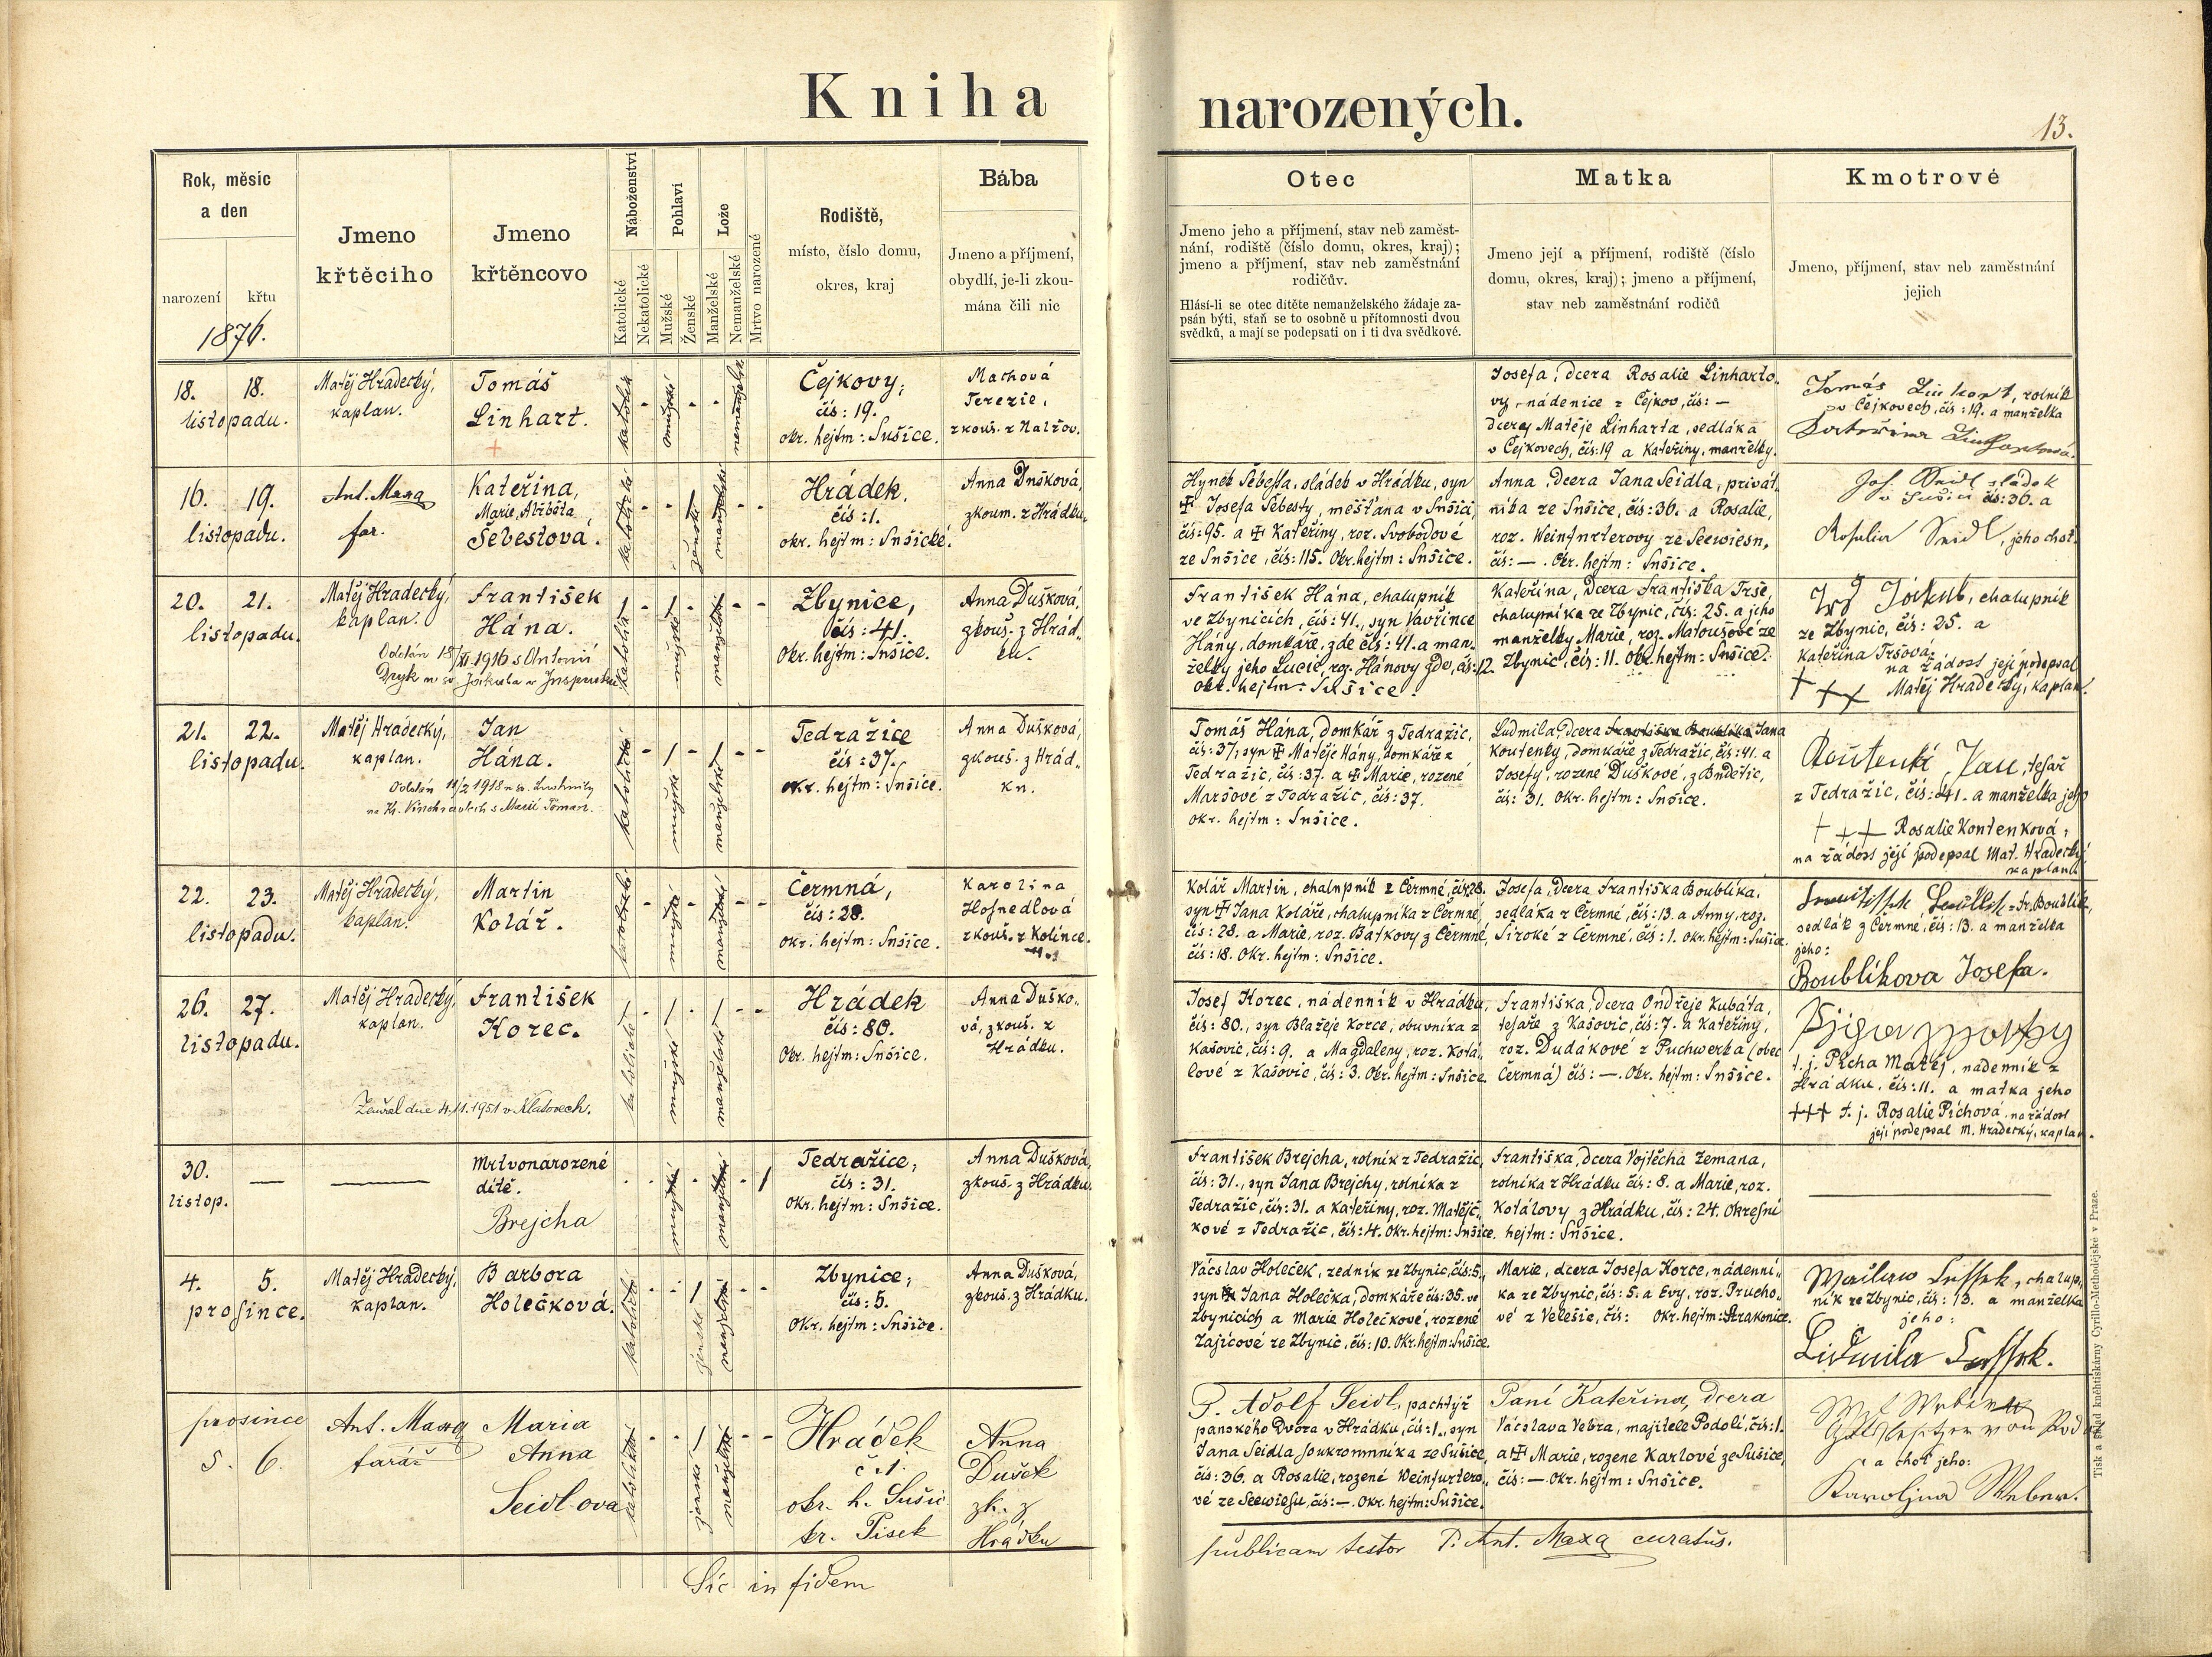 Kniha narozených.
13.
Rok, měsíc
a den
narození křtu
1876.
Jmeno
křtěcího
Jmeno
křtěncovo
Náboženství
Katolické
Nekatolické
Pohlaví
Mužské
Ženské
Lože
Manželské
Nemanželské
Mrtvo narozené
Rodiště,
místo, číslo domu,
okres, kraj
Bába
Jmeno a příjmení,
obydlí, je-li zkou-
mána čili nic
Otec
Jmeno jeho a příjmení, stav neb zaměst-
nání, rodiště (číslo domu, okres, kraj);
jmeno a příjmení, stav neb zaměstnání
rodičův.
Hlásí-li se otec dítěte nemanželského žádaje za-
psán býti, staň se to osobně u přítomnosti dvou
svědků, a mají se podepsati on i ti dva svědkové.
Matka
Jmeno její a příjmení, rodiště (číslo
domu, okres, kraj); jmeno a příjmení,
stav neb zaměstnání rodičů
Kmotrové
Jmeno, příjmení, stav neb zaměstnání
jejich
18. 18.
listopadu.
Matěj Hradecký,
kaplan.
Tomáš
Linhart.
katolík
mužské
nemanželské
Čejkovy,
čís: 19.
okr. hejtm: Sušice.
Machová
Terezie,
zkouš. z Nalžov.
Josefa, dcera Rosalie Linharto-
vy, nádenice z Čejkov, čís: —
dcery Matěje Linharta, sedláka
v Čejkovech, čís:19 a Kateřiny, manželky.
Tomás Linhart, rolník
v Čejkovech, čís: 19. a manželka
Kateřina Linhartová.
16. 19.
listopadu.
Ant. Maxa
far.
Kateřina,
Marie, Alžběta
Šebestová.
katolické
ženské
manželské
Hrádek,
čís: 1.
okr. hejtm: Sušické.
Anna Dušková,
zkoum. z Hrádku.
Hynek Šebesta, sládek v Hrádku, syn
✠ Josefa Šebesty, měšťana v Sušici,
čís:95. a ✠ Kateřiny, roz. Svobodové
ze Sušice, čís: 115. Okr. hejtm: Sušice.
Anna, dcera Jana Seidla, privát-
níka ze Sušice, čís: 36. a Rosalie,
roz. Weinfurterovy ze Seewiesn,
čís: —. Okr. hejtm: Sušice.
Joh. Seidl sládek
v Sušici čís: 36. a
Rosalia Seidl, jeho choť.
20. 21.
listopadu.
Matěj Hradecký,
kaplan.
František
Hána.
Oddán 18/XI. 1916 s Antonií
Dryk u sv. Jakuba v Inspruku
katolické
mužské
manželské
Zbynice,
čís: 41.
Okr. hejtm: Sušice.
Anna Dušková,
zkouš. z Hrád-
ku.
František Hána, chalupník
ve Zbynicích, čís: 41., syn Vavřince
Hány, domkáře, zde čís: 41. a man-
želky jeho Lucie, roz. Hánovy zde, čís: 12.
Okr. hejtm: Sušice.
Kateřina, dcera Františka Trše,
chalupníka ze Zbynic, čís: 25. a jeho
manželky Marie, roz. Matoušové ze
Zbynic, čís: 11. Okr. hejtm: Sušice.
Trš Jakub, chalupník
ze Zbynic, čís: 25. a
Kateřina Tršova.
na žádost její podepsal
+++ Matěj Hradecký, kaplan.
21. 22.
listopadu.
Matěj Hradecký,
kaplan.
Jan
Hána.
Oddán 11/2 1918 u sv. Ludmily
na Kr. Vinohradech s Marií Toman.
katolické
mužské
manželské
Tedražice
čís: 37.
okr. hejtm: Sušice.
Anna Dušková,
zkouš. z Hrád-
ku.
Tomáš Hána, domkář z Tedražic,
čís: 37, syn ✠ Matěje Hány, domkáře z
Tedražic, čís: 37. a ✠ Marie, rozené
Maršové z Tedražic, čís: 37.
okr. hejtm: Sušice.
Ludmila, dcera Františka Boublíka Jana
Koutenky, domkáře z Tedražic, čís: 41. a
Josefy, rozené Duškové, z Budětic,
čís: 31. Okr. hejtm: Sušice.
Koutenki Jan, tesař
z Tedražic, čís: 41. a manželka jeho
+++ Rosalie Koutenková,
na žádost její podepsal Mat. Hradecký,
kaplan.
22. 23.
listopadu.
Matěj Hradecký,
kaplan.
Martin
Kolář.
katolické
mužské
manželské
Čermná,
čís: 28.
okr. hejtm: Sušice.
Karolina
Hosnedlová
zkouš. z Kolince.
Kolář Martin, chalupník z Čermné, čís 28.
syn ✠ Jana Koláře, chalupníka z Čermné,
čís: 28. a Marie, roz. Batkovy z Čermné,
čís: 18. Okr. hejtm: Sušice.
Josefa, dcera Františka Boublíka,
sedláka z Čermné, čís: 13. a Anny, roz.
Široké z Čermné, čís: 1. okr. hejtm: Sušice.
= Fr. Boublík,
sedlák z Čermné, čís: 13. a manželka
jeho:
Boublíkova Josefa.
26. 27.
listopadu.
Matěj Hradecký,
kaplan.
František
Korec.
Zemřel dne 4.11.1951 v Klatovech.
katolické
mužské
manželské
Hrádek
čís: 80.
Okr. hejtm: Sušice.
Anna Duško-
vá, zkouš. z
Hrádku.
Josef Korec, nádenník v Hrádku,
čís: 80., syn Blažeje Korce, obuvníka z
Kašovic, čís: 9. a Magdaleny, roz. Kotá-
lové z Kašovic, čís: 3. Okr. hejtm: Sušice.
Františka, dcera Ondřeje Kubáta,
tesaře z Kašovic, čís: 7. a Kateřiny,
roz. Dudákové z Puchwerka (obec
Čermná) čís: —. Okr. hejtm: Sušice.
t. j. Pícha Matěj, nádenník z
Hrádku, čís: 11. a matka jeho
+++ t. j. Rosalie Píchová, na žádost
její podepsal M. Hradecký, kaplan.
30.
listop.
Mrtvonarozené
dítě.
Brejcha
mužské
manželské
Tedražice,
čís: 31.
Okr. hejtm: Sušice.
Anna Dušková,
zkouš. z Hrádku.
František Brejcha, rolník z Tedražic,
čís: 31., syn Jana Brejchy, rolníka z
Tedražic, čís: 31. a Kateřiny, roz. Matějč-
kové z Tedražic, čís: 4. Okr. hejtm: Sušice.
Františka, dcera Vojtěcha Zemana,
rolníka z Hrádku čís: 8. a Marie, roz.
Kotálovy z Hrádku, čís: 24. Okresní
hejtm: Sušice.
4. 5.
prosince.
Matěj Hradecký,
kaplan.
Barbora
Holečková.
katolické
ženské
manželské
Zbynice,
čís: 5.
Okr. hejtm: Sušice.
Anna Dušková,
zkouš. z Hrádku.
Vácslav Holeček, zedník ze Zbynic, čís: 5.,
syn ✠ Jana Holečka, domkáře čís: 35. ve
Zbynicích a Marie Holečkové, rozené
Zajícové ze Zbynic, čís: 10. Okr. hejtm: Sušice.
Marie, dcera Josefa Korce, nádenní-
ka ze Zbynic, čís: 5. a Evy, roz. Prucho-
vé z Velešic, čís: Okr. hejtm: Strakonice.
chalup-
ník ze Zbynic, čís: 13. a manželka
jeho:
prosince
5. 6.
Ant. Maxa
farář
Maria
Anna
Seidl-ova
katolické
ženské
manželské
Hrádek
č. 1.
okr. h. Sušic
kr. Pisek
Anna
Dušek
zk. z
Hrádku
P. Adolf Seidl, pachtýř
panského dvora v Hrádku, čís: 1., syn
Jana Seidla, soukromníka ze Sušice,
čís: 36. a Rosalie, rozené Weinfurtero-
vé ze Seewiesn, čís: —. Okr. hejtm: Sušice.
Paní Kateřina, dcera
Vácslava Vebra, majitele Podolí, čís: 1.
a ✠ Marie, rozene Karlové ze Sušice,
čís: — Okr. hejtm: Sušice.
a choť jeho:
Karolina Weber.
Sic in fidem publicam testor P. Ant. Maxa curatus.
Tisk a sklad knihtiskárny Cyrillo-Methodějské v Praze.